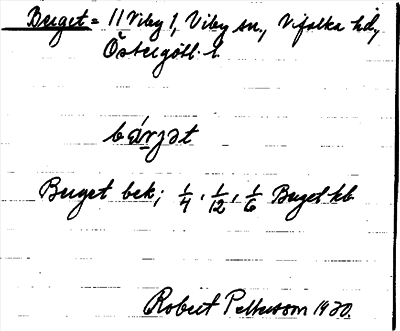 Berget = 11 Viby 1, Viby sn., Vifolka hd,
Östergötl. l.
bárjət
Berget bek; 1/4, 1/12, 1/6 Berget kb
Robert Pettersson 1930.